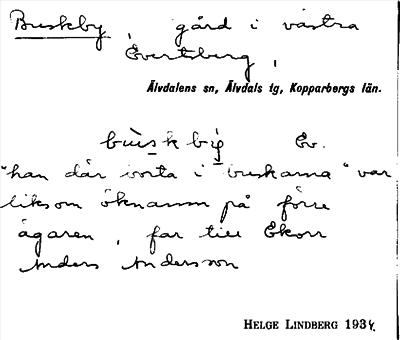 Buskby, gård i västra
Evertsberg,
Älvdalens sn, Älvdals tg, Kopparbergs län.
bùskbỳ Ev.
"han där borta i buskarna" var
liksom öknamn på förre
ägaren, far till Ekorr
Anders Andersson
HELGE LINDBERG 1934.